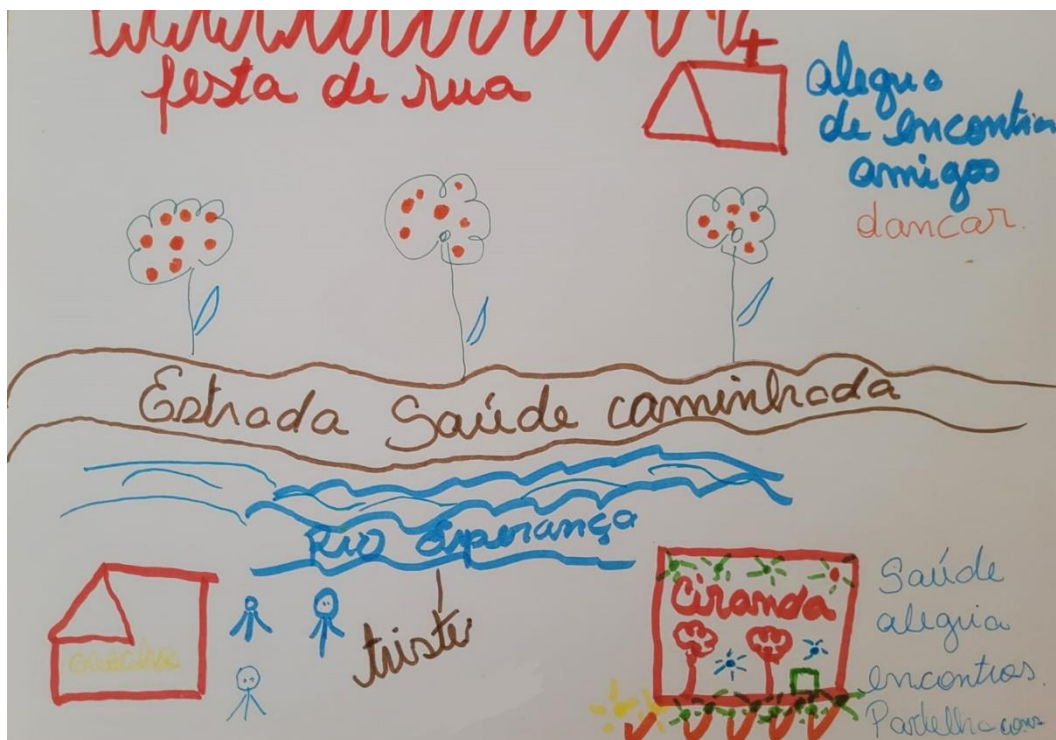 festa de rua
alegria
de encontrar
amigos
dançar.
Estrada Saúde caminhada
Rio Esperança
triste
Ciranda
Saúde
alegria
encontros.